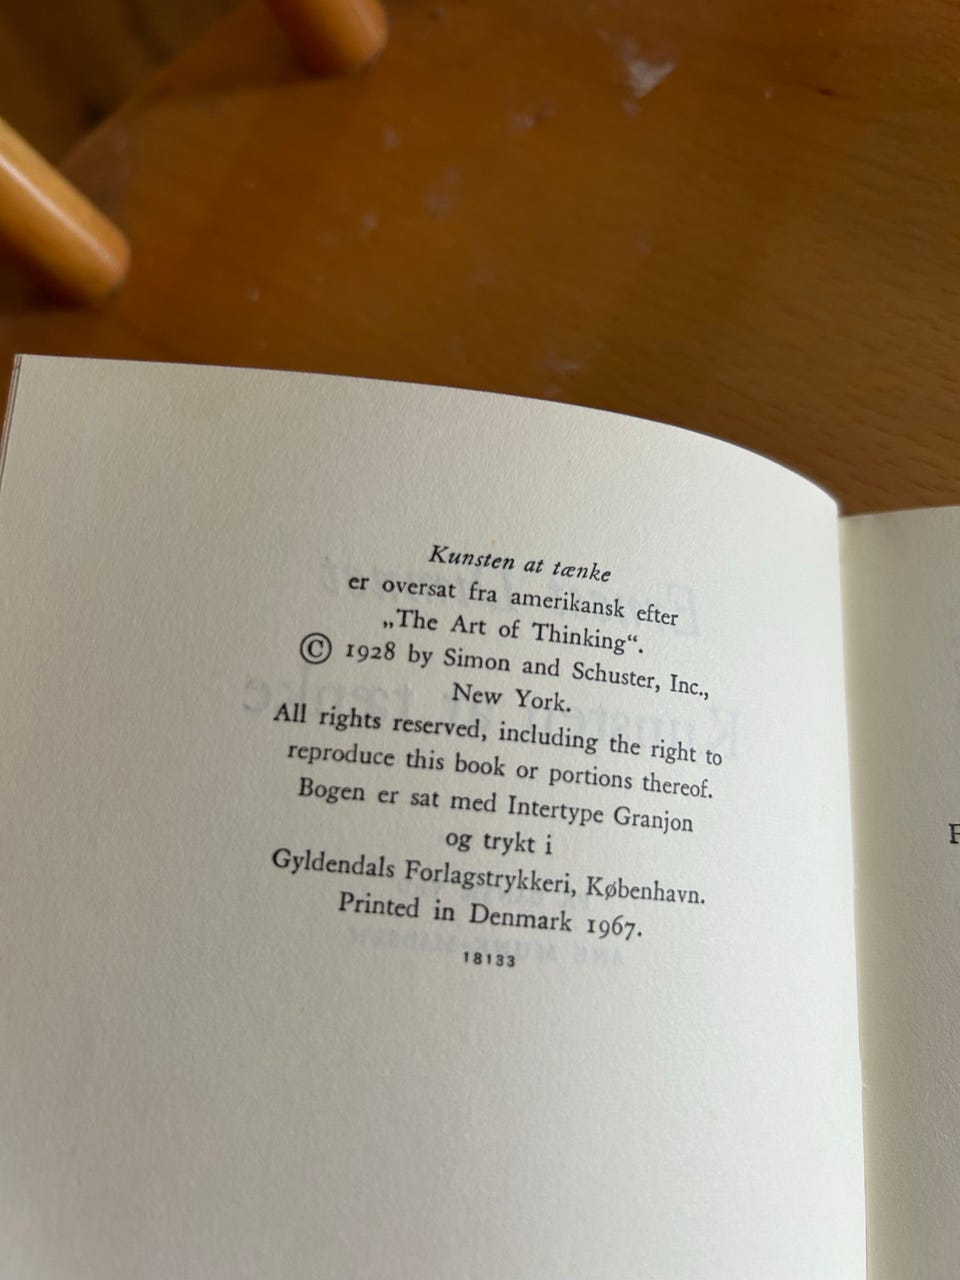 Kunsten at tænke
er oversat fra amerikansk efter
„The Art of Thinking“.
© 1928 by Simon and Schuster, Inc.,
New York.
All rights reserved, including the right to
reproduce this book or portions thereof.
Bogen er sat med Intertype Granjon
og trykt i
Gyldendals Forlagstrykkeri, København.
Printed in Denmark 1967.
18133